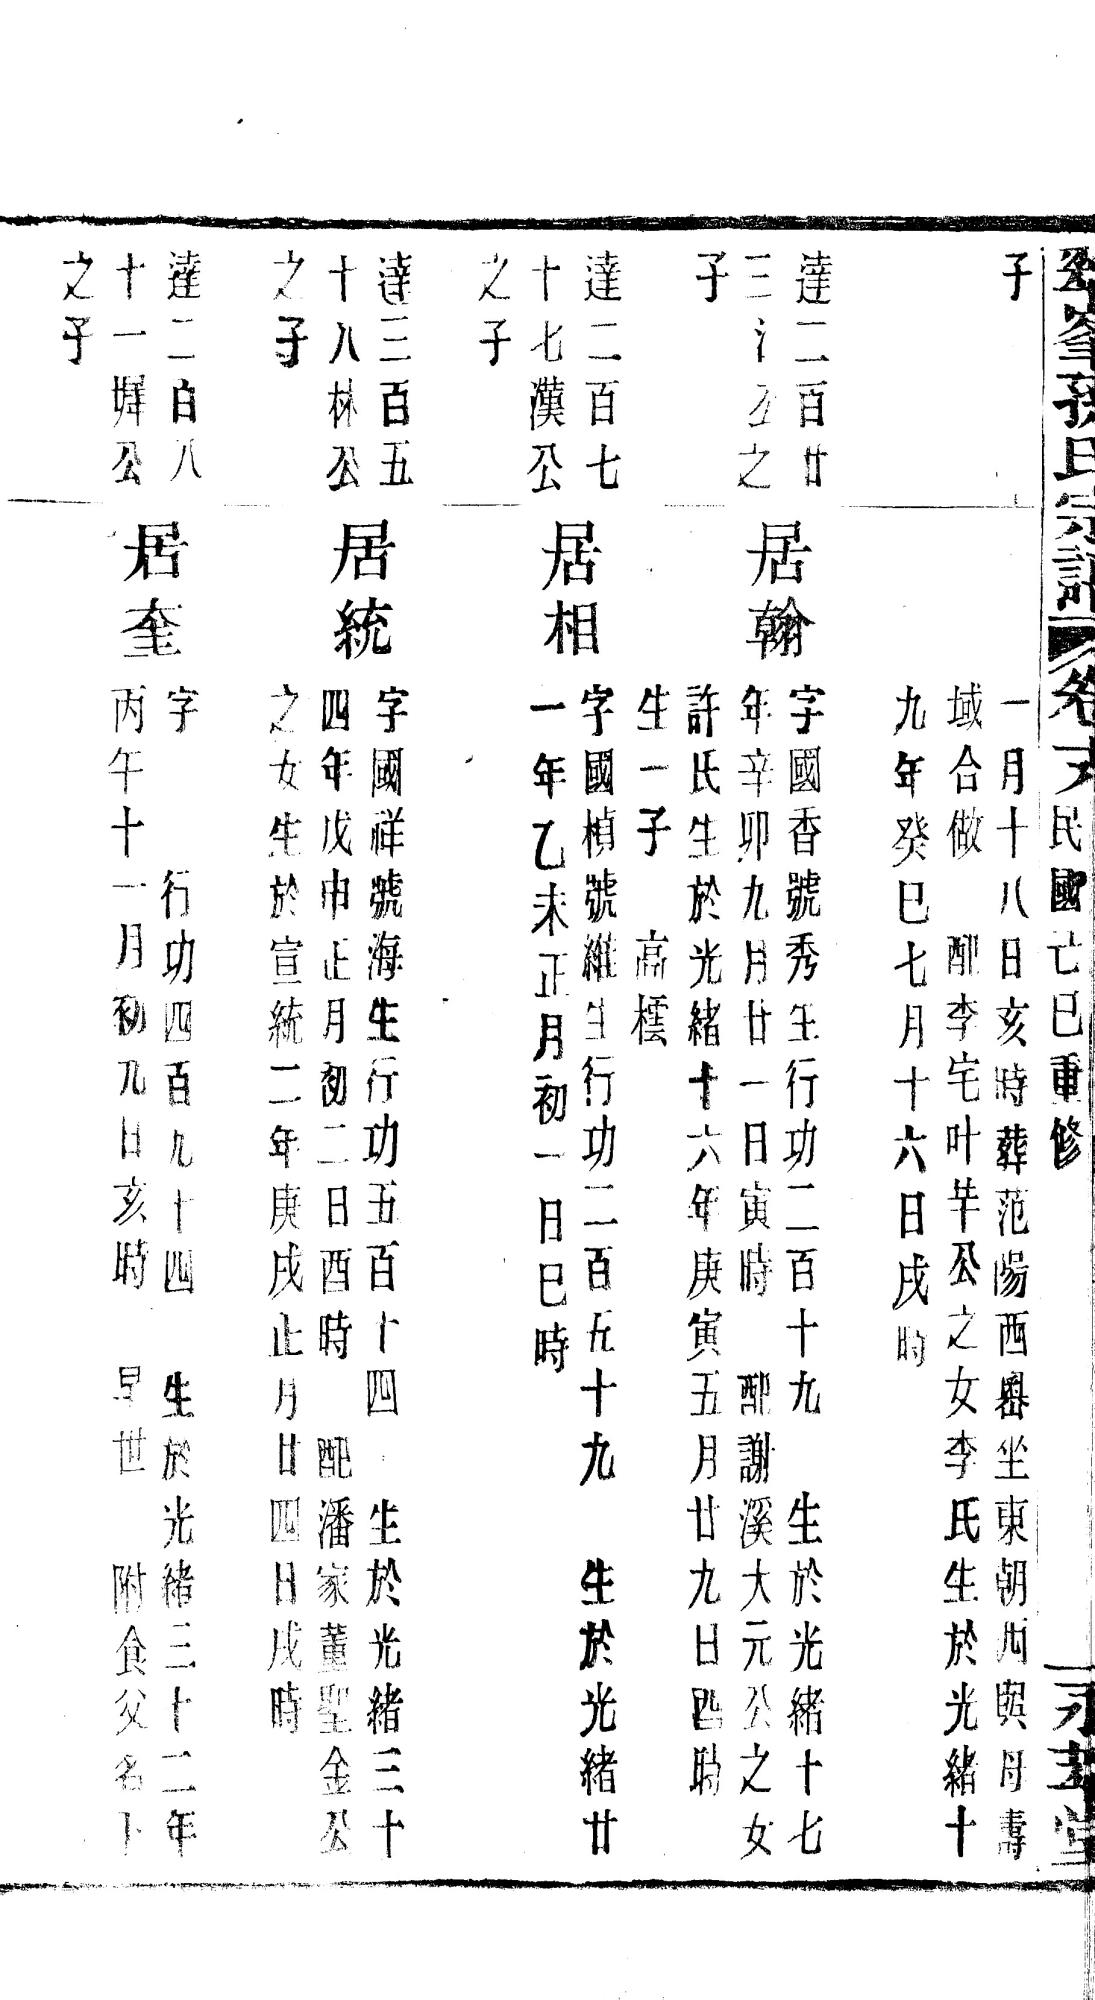 孫氏宗譜
卷
民國亡巳重修
堂
子
一月十八日亥時葬范陽西嶴坐東朝西與母壽
域合做 配李宅叶芉公之女李氏生於光緒十
九年癸巳七月十六日戌時
達二百廿
三公之
子
居翰
字國香號秀生行功二百十九 生於光緒十七
年辛卯九月廿一日寅時 配謝溪大元公之女
許氏生於光緒十六年庚寅五月廿九日酉時
生一子 高橒
達二百七
十七漢公
之子
居相
字國楨號維生行功二百五十九 生於光緒廿
一年乙未正月初一日巳時
達三百五
十八林公
之子
居統
字國祥號海生行功五百十四 生於光緒三十
四年戊申正月初二日酉時 配潘家董聖金公
之女生於宣統二年庚戌正月廿四日戌時
達二百八
十一墀公
之子
居奎
字 行功四百九十四 生於光緒三十二年
丙午十一月初九日亥時 早世 附食父名下